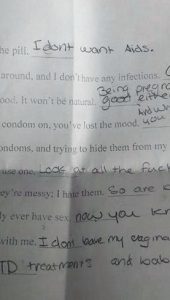 the pill. I dont want Aids.
around, and I don't have any infections.
Being pregna
ood. It won't be natural. good eithe
condom on, you've lost the mood. you
ondoms, and trying to hide them from my
use one. Look at all the fuc
ey're messy; I hate them. So are k
ly ever have sex. now you
with me. I dont have my vagina
TD treatments and